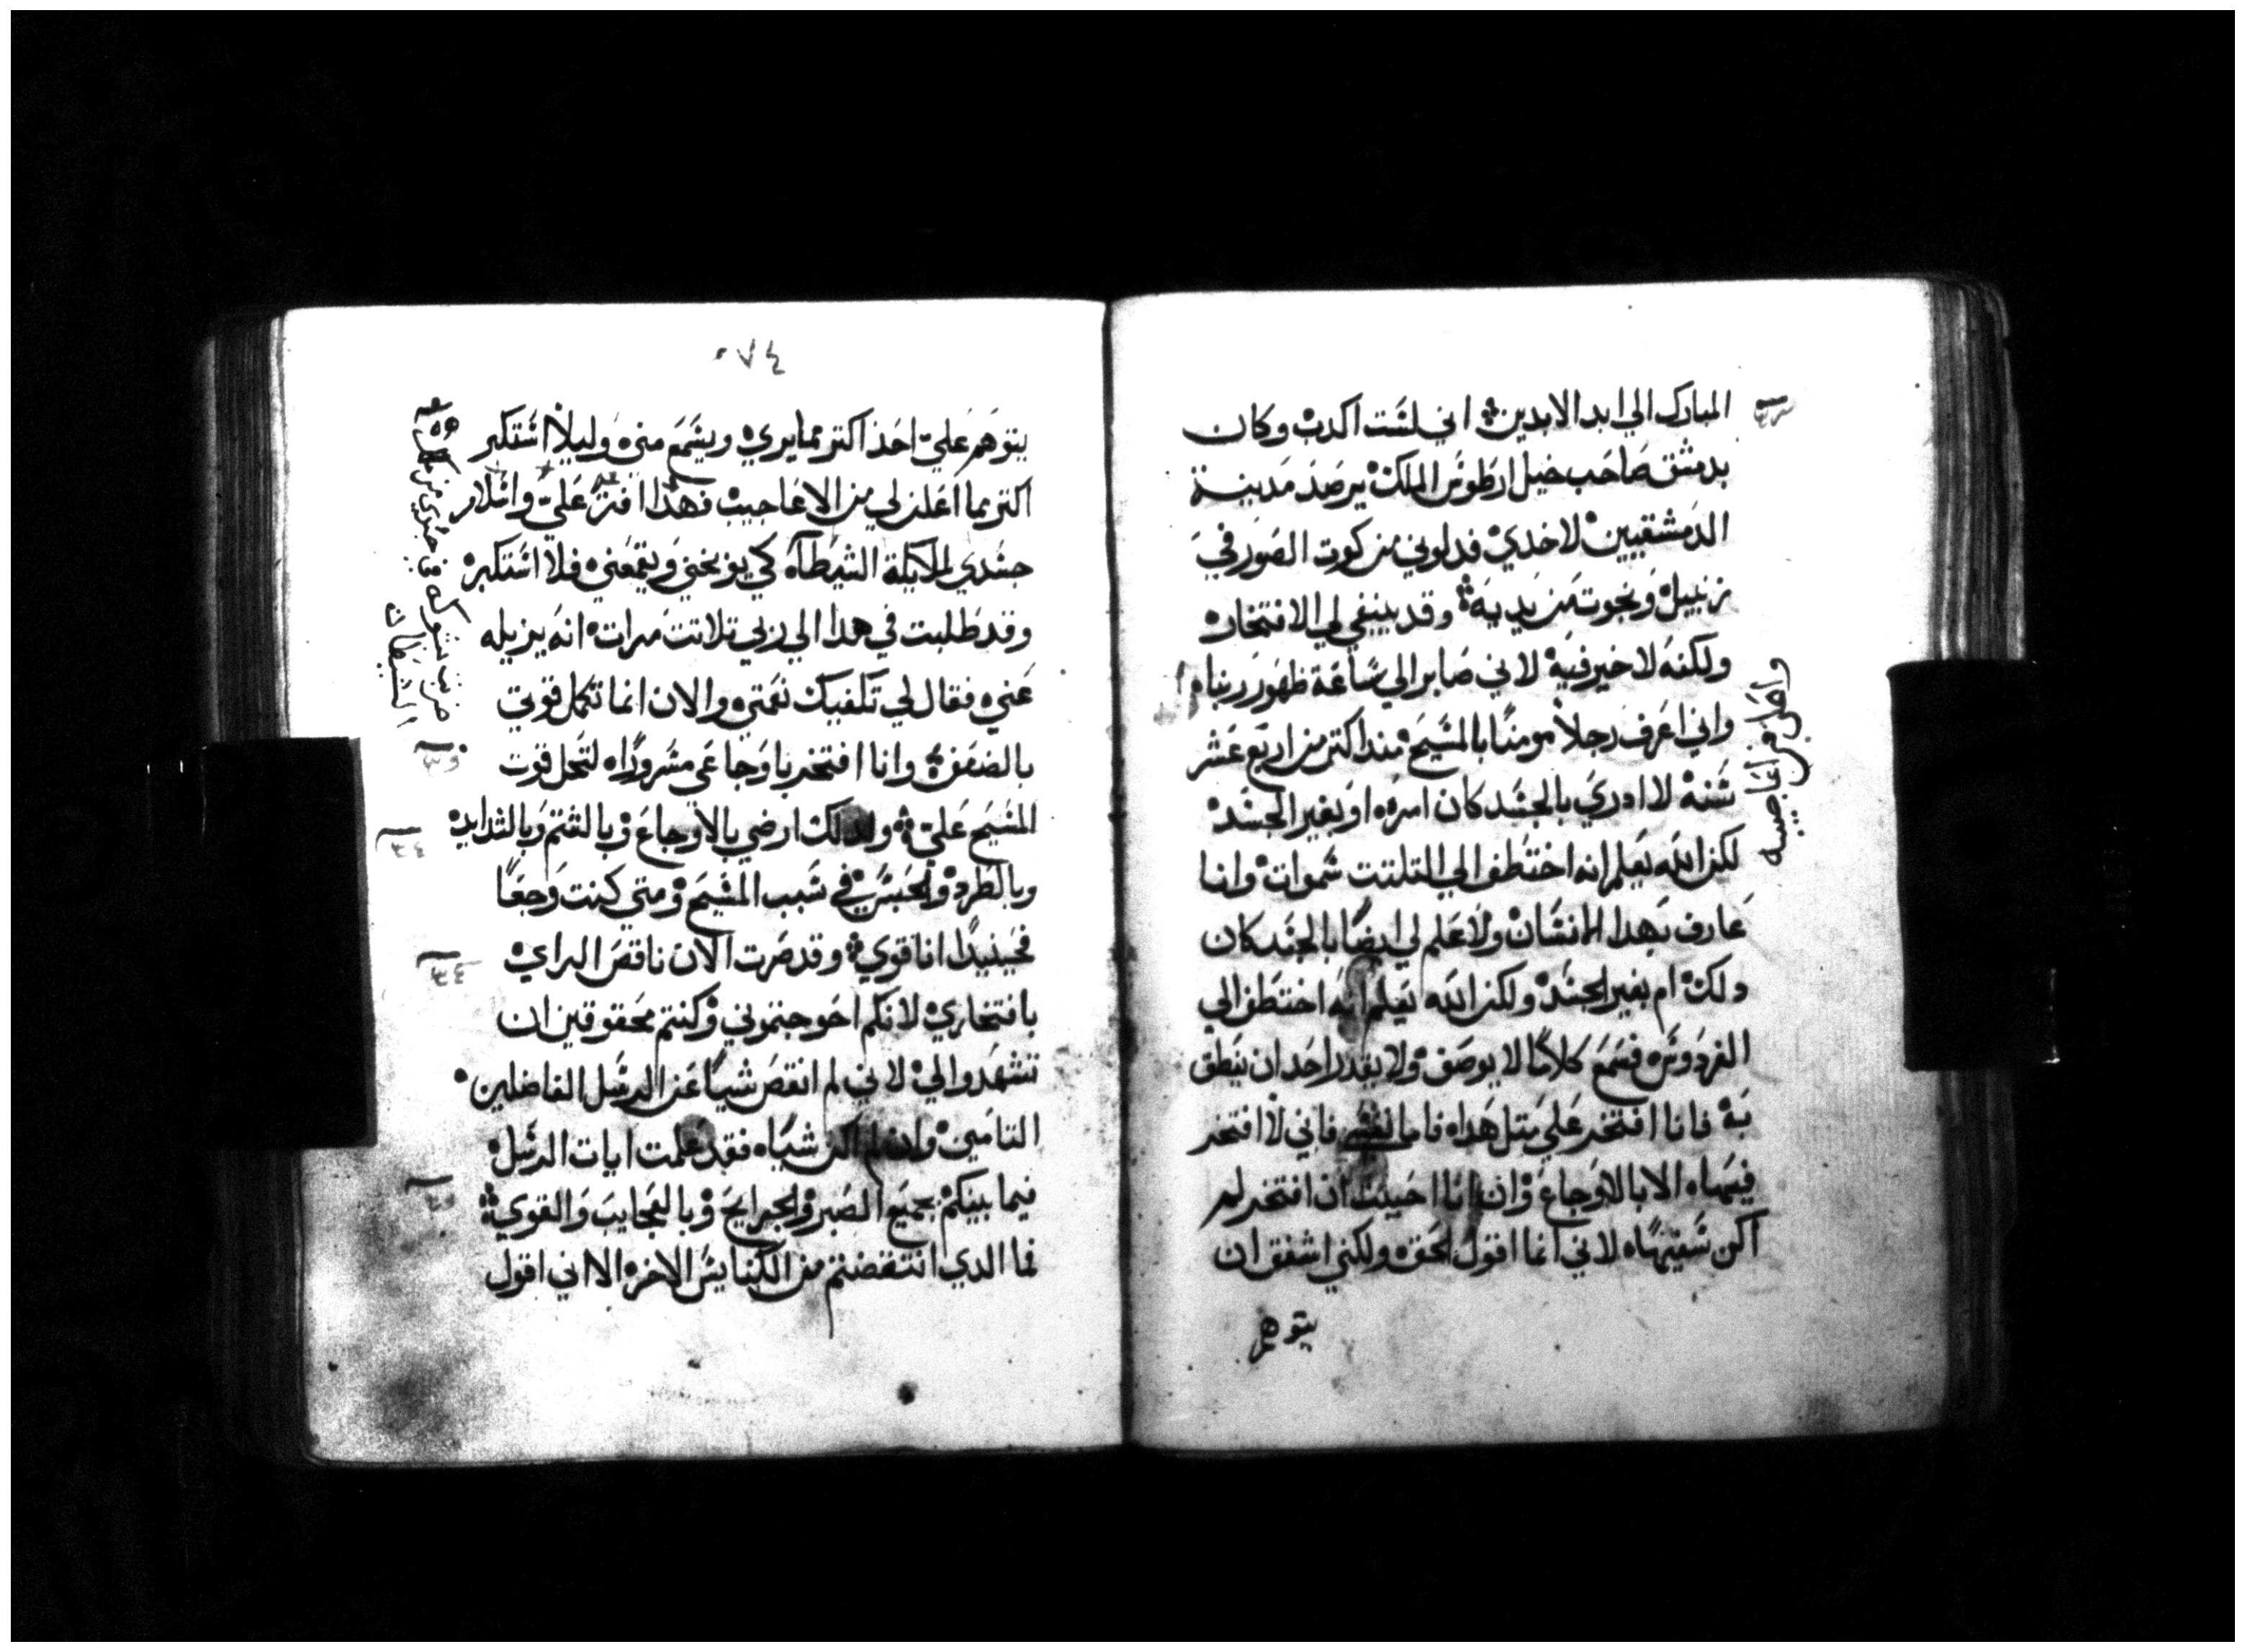 المبارك الي ابد الابدين ۞ اني لست اكدب وكان
بدمشق صاحب خيل ارطوس الملك يرصد مدينة
الدمشقيين لاخدي فدلوني من كوت الصور في
زنبيل ونجوت من يديه ۞ وقد ينبغي لي الافتخار
ولكنه لا خير فيه لاني صابر الي ساعة ظهور ربنا ه
واني اعرف رجلاً مومنًا بالمسيح مند اكتر من اربع عشر
سنه لا ادري بالجسد كان امره او بغير الجسد
لكن الله يعلم انه اختطف الي التلتت سموات وانا
عارف بهدا الانسان ولا علم لي ايضًا بالجسد كان
دلك ام بغير الجسد ولكن الله يعلم انه اختطف الي
الفردوس ه فسمع كلامًا لا يوصف ولا يقدر احد ان ينطق
به فانا افتخر علي متل هدا ه فاما نفسي فاني لا افتخر
فيها ه الا بالاوجاع وان انا احببت ان افتخر لم
اكن سفيهًا ه لاني انما اقول الحق ه ولكني اشفق ان
يتوهم
واطل من اعاجيبه
٠٧٤
يتوهم علي احد اكتر مما يري ويسمع مني ه وليلا استكبر
اكتر بما اعلن لي من الاعاجيب فهدا افتر علي واتلار
جسدي لملايكة الشيطاه كي يوبخني ويقمعني ه فلا استكبر ه
وقد طلبت في هدا الي ربي تلاتت مرات انه يزيله
عني ه فقال لي تكفيك نعمتي ه والان انما تكمل قوتي
بالضعف ۞ وانا افتخر باوجاعي مسرورًا ه لتحل قوت
المسيح علي ۞ ولدلك ارضي بالاوجاع وبالشتم وبالشدايد
وبالطرد والحبس في سبب المسيح ومتي كنت وجعًا
فحينيدًا انا قوي ۞ وقد صرت الان ناقص الراي
بافتخاري لانكم احوجتموني وكنتم محقوقين ان
تشهدوا لي لاني لم انقص شيا عن الرسل الفاضلين
التامين وان لم اكن شيا ه فقد علمت ايات الرسل
فيما بينكم بجميع الصبر والجرايح وبالعجايب والقوي ۞
فما الدي انتقضتم من الكنايس الاخر ه الا اني اقول